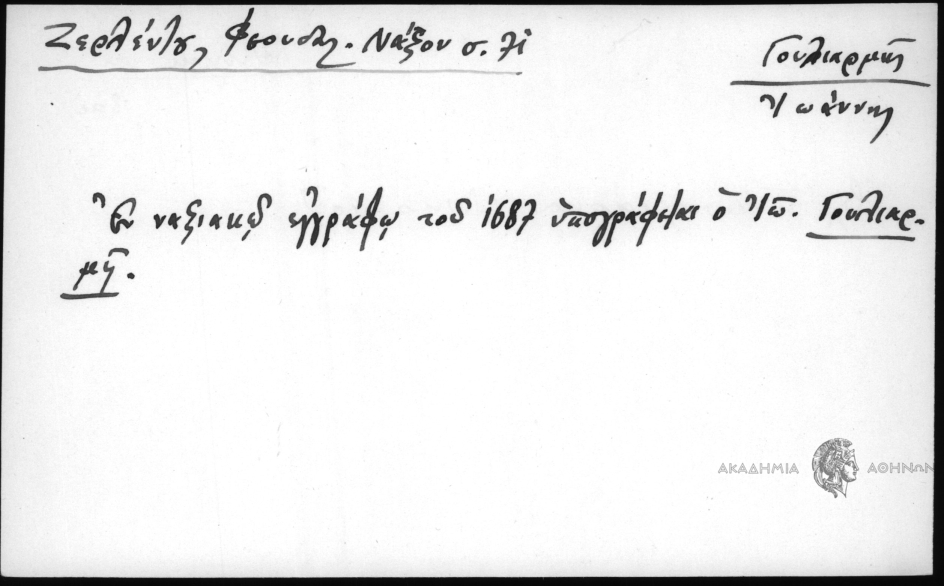 Ζερλέντης, Φεουδαλ. Νάξου σ. 71
Γουλιαρμῆς
Ἰωάννης
Ἐν ναξιακῷ ἐγγράφῳ τοῦ 1687 ὑπογράφεται ὁ Ἰω. Γουλιαρ-
μῆ.
ΑΚΑΔΗΜΙΑ ΑΘΗΝΩΝ